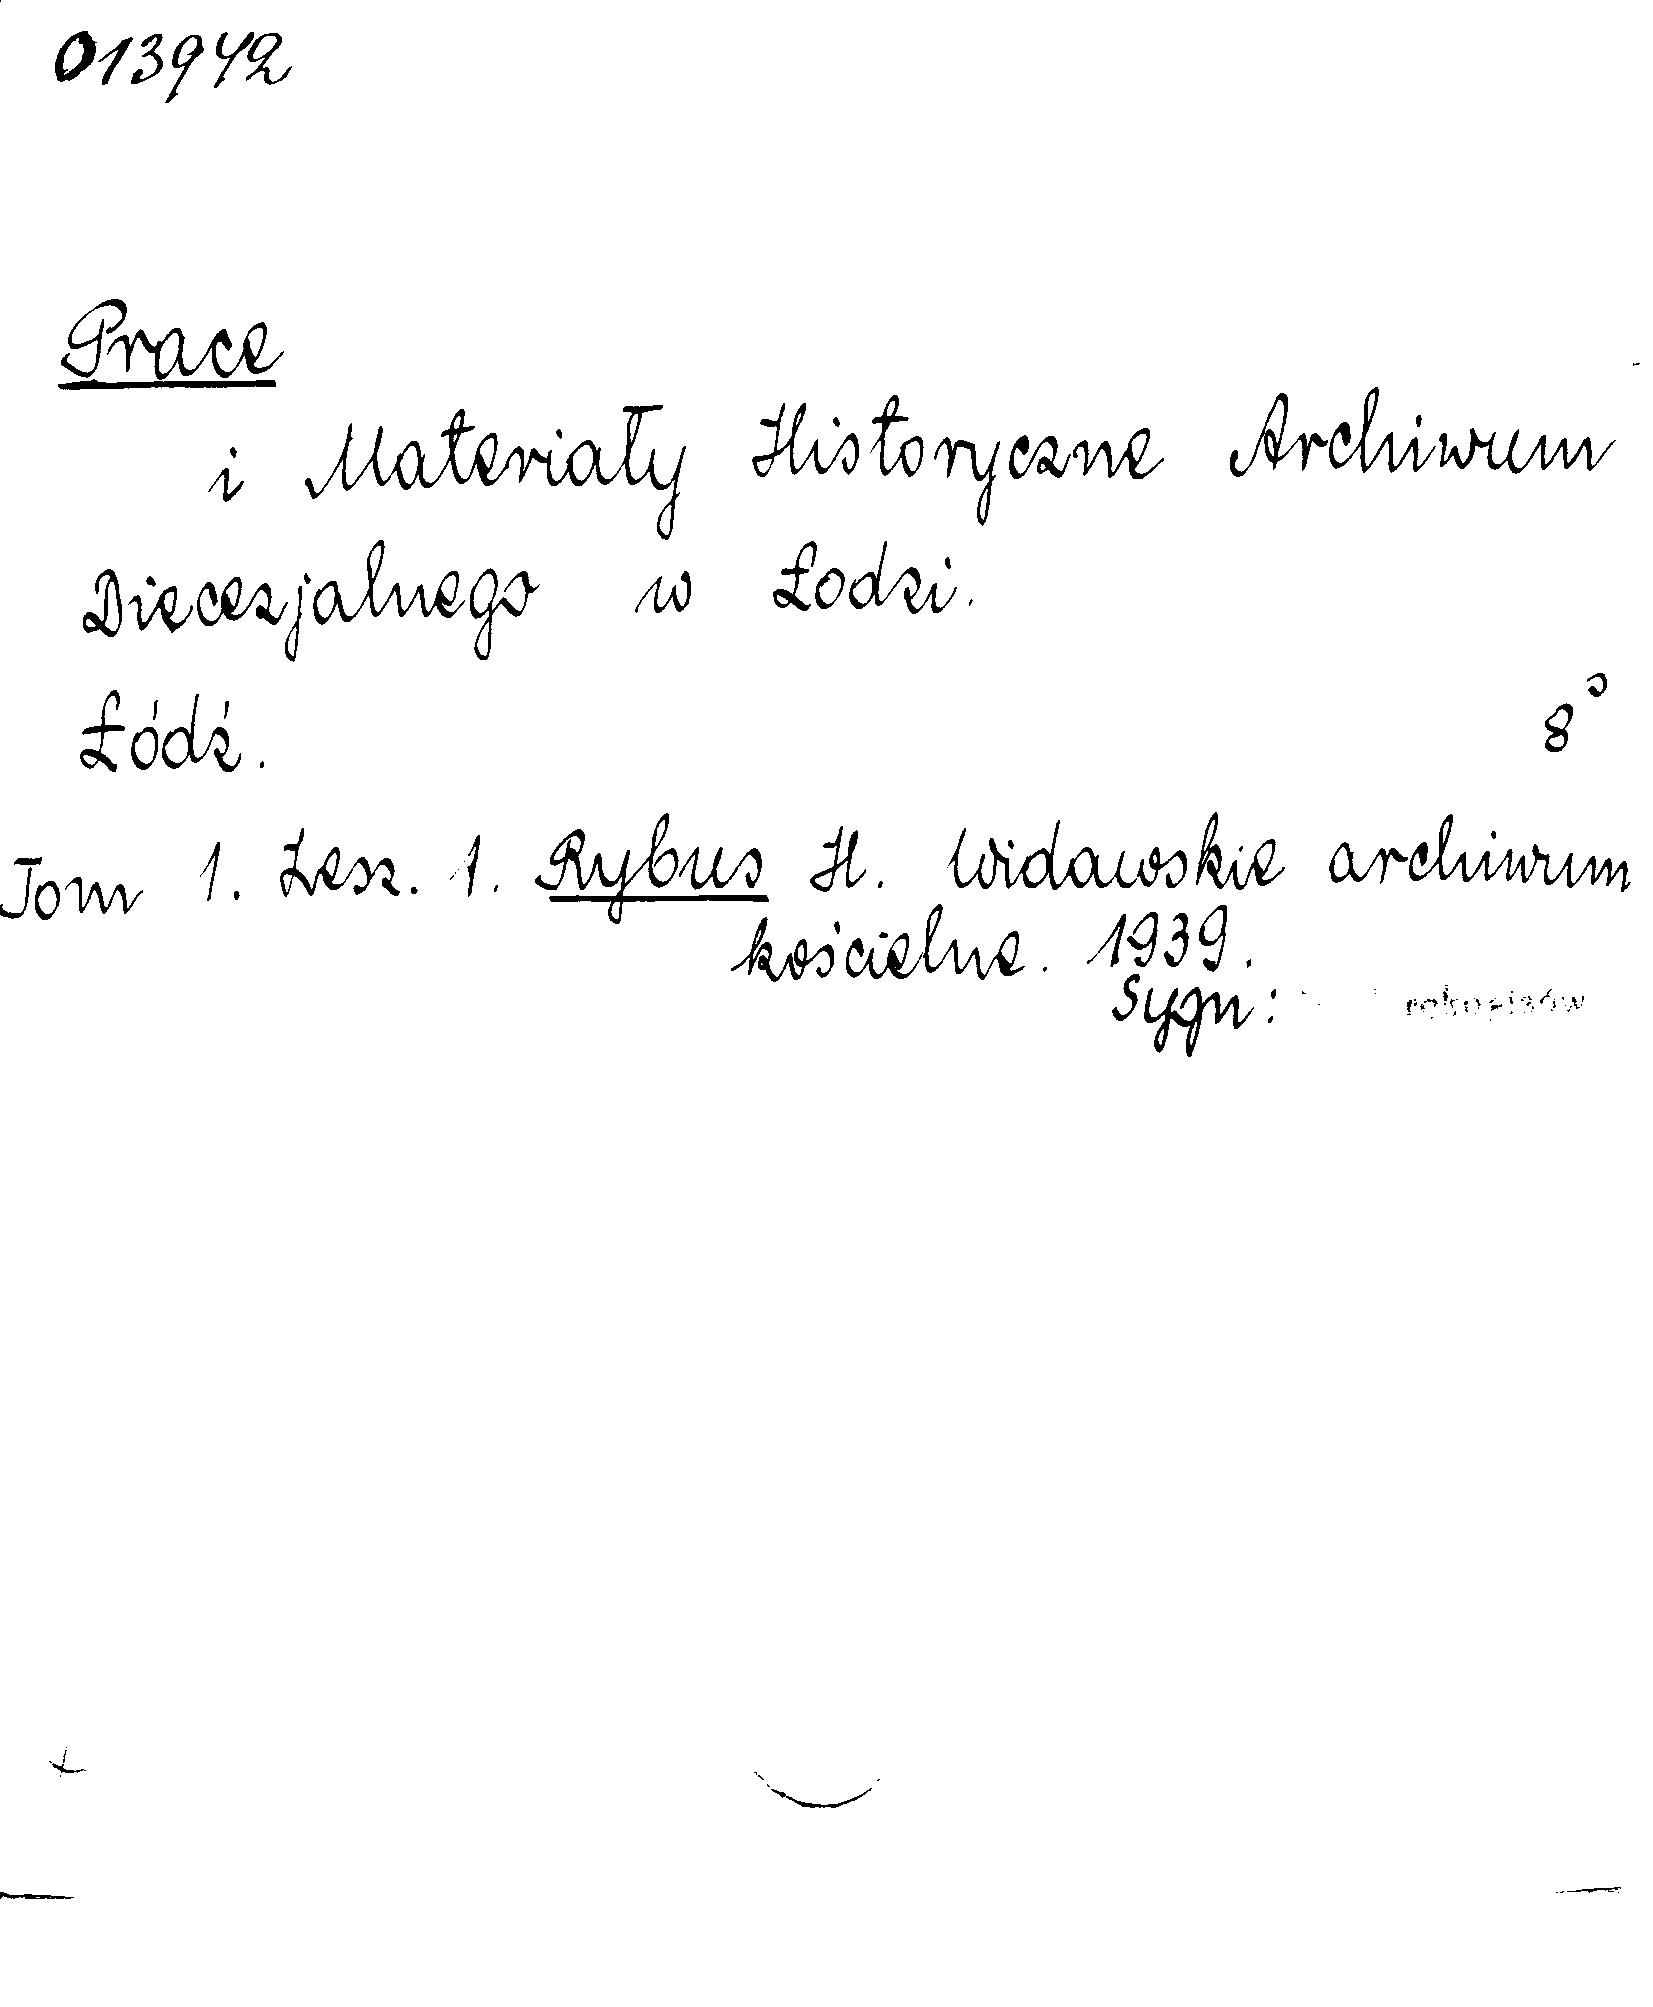 013942
Prace
i Materiały Historyczne Archiwum
Diecezjalnego w Łodzi.
Łódź. 8°
Tom 1. Zesz. 1. Rybus H. Widawskie archiwum
kościelne. 1939.
Sygn: rękopisów